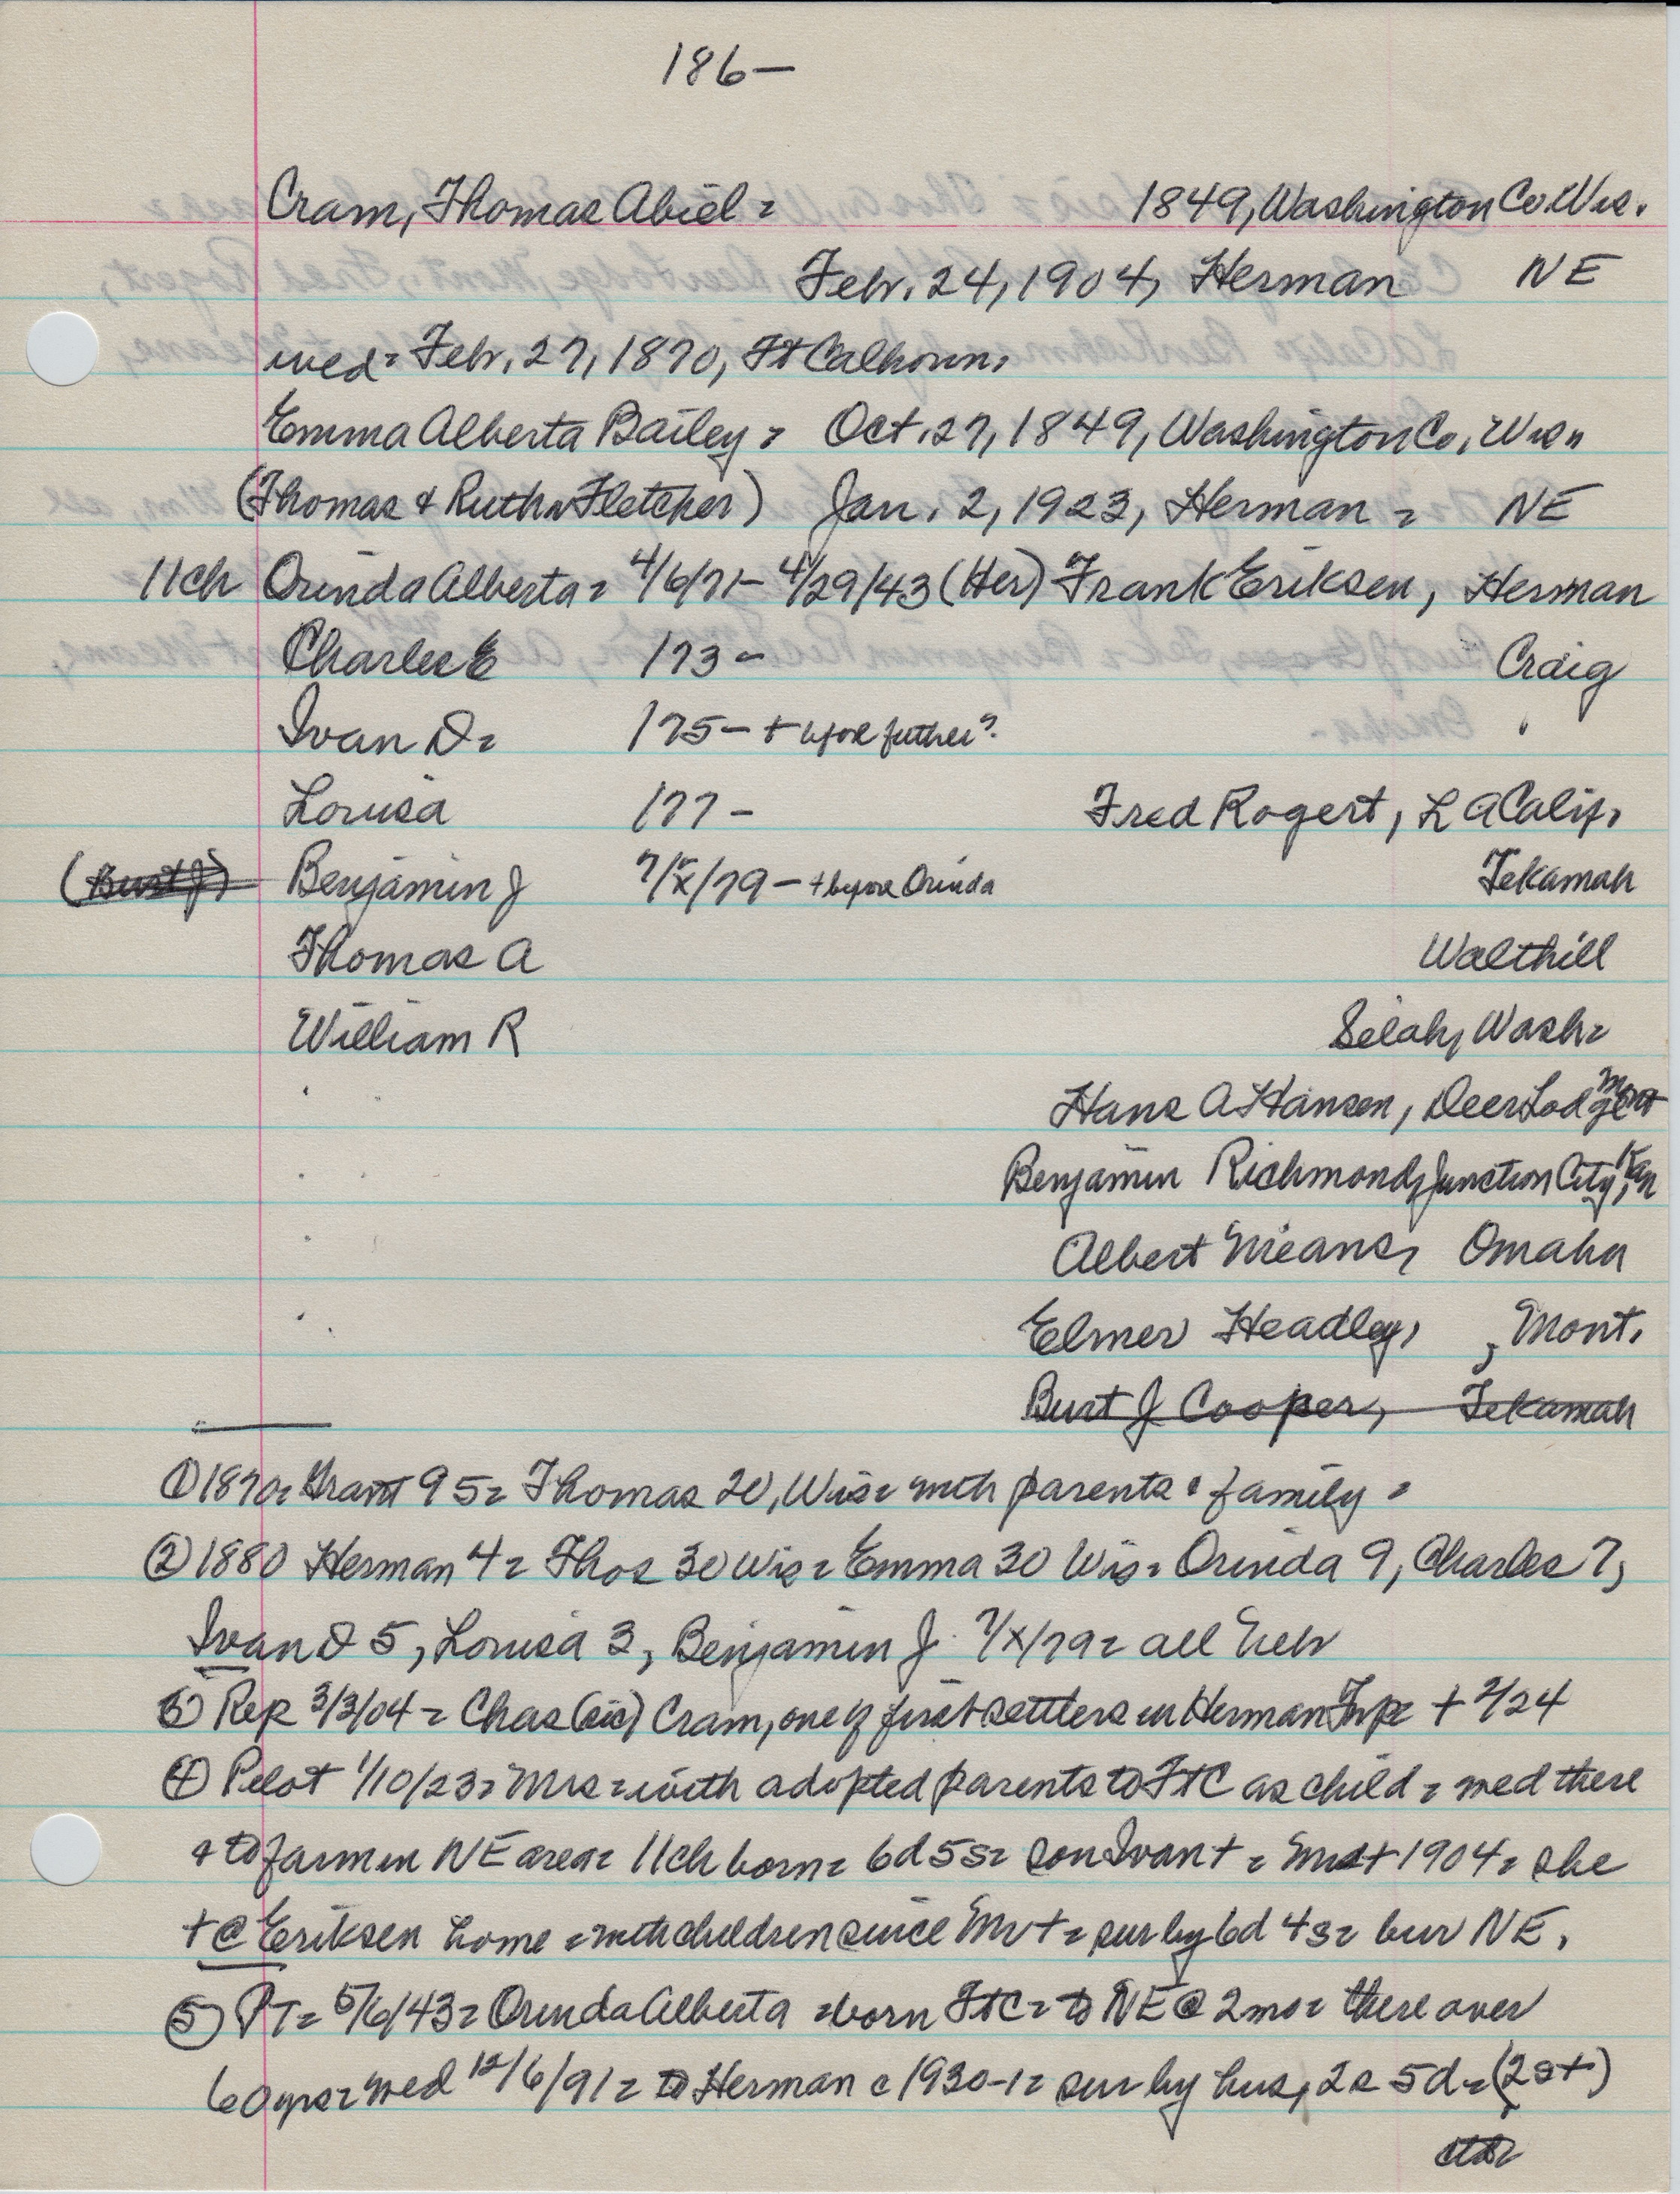 186—
Cram, Thomas Abiel = 1849, Washington Co. Wis.
Febr. 24, 1904, Herman NE
wed = Febr. 27, 1870, Ft Calhoun,
Emma Alberta Bailey = Oct. 27, 1849, Washington Co, Wis.
(Thomas & Ruth Fletcher) Jan. 2, 1923, Herman = NE
11ch Orinda Alberta = 4/6/71 - 4/29/43 (Her) Frank Eriksen, Herman
Charles E 173 - Craig
Ivan D = 175 - + before father? "
Louisa 177 - Fred Rogert, L A Calif,
(Burt J) Benjamin J ?/x/79 - + before Orinda Tekamah
Thomas A Walthill
William R Selah, Wash =
Hans A Hansen, Deer Lodge Mont
Benjamin Richmond, Junction City, Kan
Albert Means, Omaha
Elmer Headley, , Mont.
Burt J Cooper, Tekamah
① 1870 = Grant 95 = Thomas 20, Wis = with parents & family =
② 1880 Herman 4 = Thos 30 Wis = Emma 30 Wis = Orinda 9, Charles 7,
Ivan D 5, Louisa 3, Benjamin J ?/x/79 = all Neb
③ Rep 3/3/04 = Chas (sic) Cram, one of first settlers in Herman Twp + 2/24
④ Pilot 1/10/23 = Mrs = with adopted parents to FtC as child = wed there
& to farm in NE area = 11ch born = 6d 5s = son Ivan + = Mr + 1904 = she
+ @ Eriksen home = with children since Mr + = sur by 6d 4s = bur NE.
⑤ PT = 5/6/43 = Orinda Alberta = born FtC = to NE @ 2mo = there over
60 yrs = wed 12/6/91 = to Herman c 1930-1 = sur by hus, 2s 5d = (2s+)